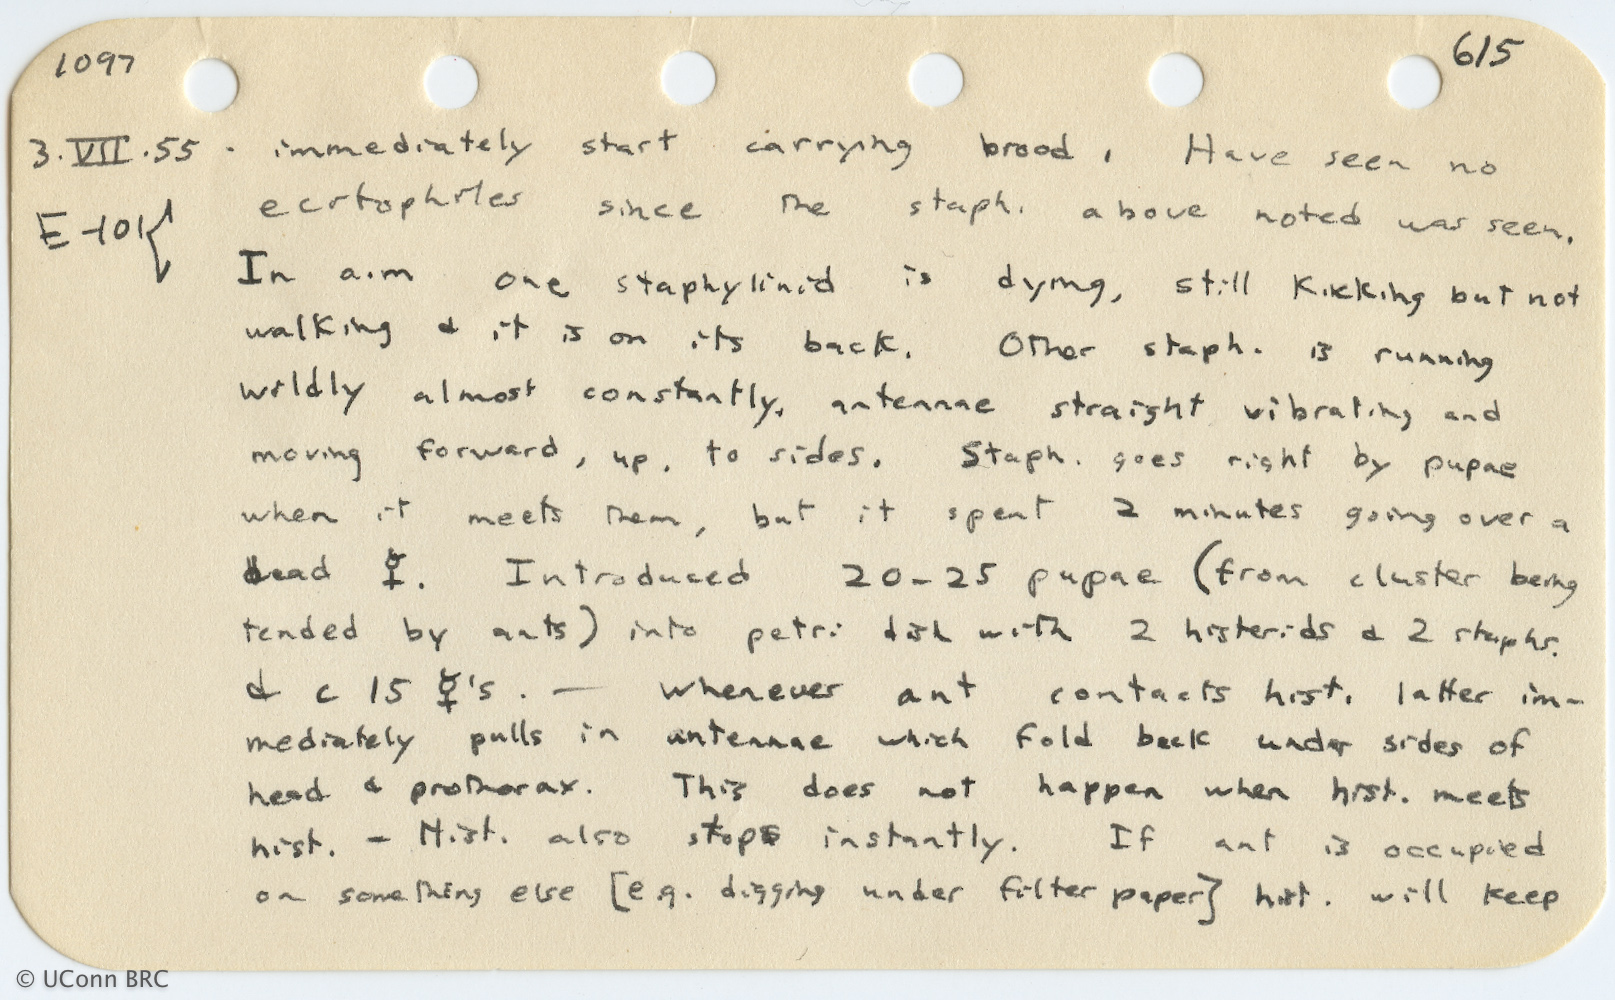 1097
615
3.VII.55 - immediately start carrying brood. Have seen no
E-101{ ecitophiles since the staph. above noted was seen.
In a.m one staphylinid is dying, still kicking but not
walking & it is on its back. Other staph. is running
wildly almost constantly, antennae straight vibrating and
moving forward, up, to sides. Staph. goes right by pupae
when it meets them, but it spent 2 minutes going over a
dead ☿. Introduced 20-25 pupae (from cluster being
tended by ants) into petri dish with 2 histerids & 2 staphs.
& c 15 ☿'s. — Whenever ant contacts hist. latter im-
mediately pulls in antennae which fold back under sides of
head & prothorax. This does not happen when hist. meets
hist. - Hist. also stops instantly. If ant is occupied
on something else [e.g. digging under filter paper] hist. will keep
© UConn BRC